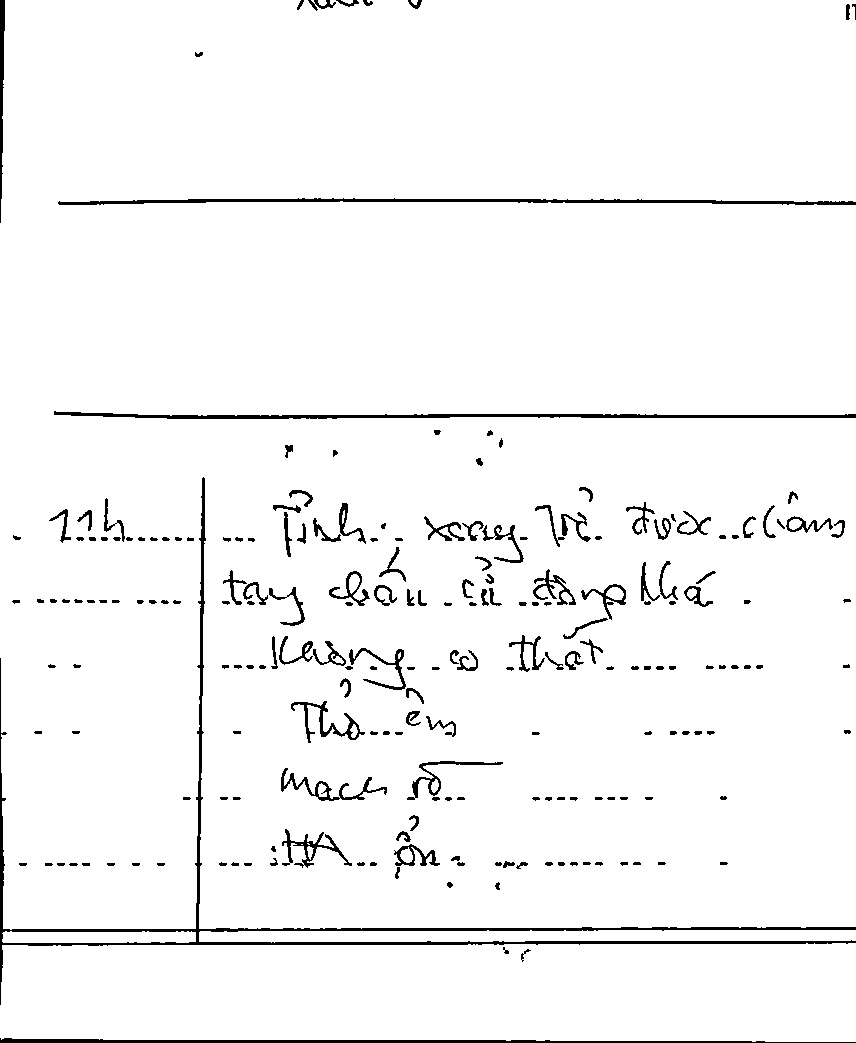 11h Tỉnh, xoay trở được chậm
tay chân cử động khá
Không co thắt
Thở êm
mạch rõ
HA ổn